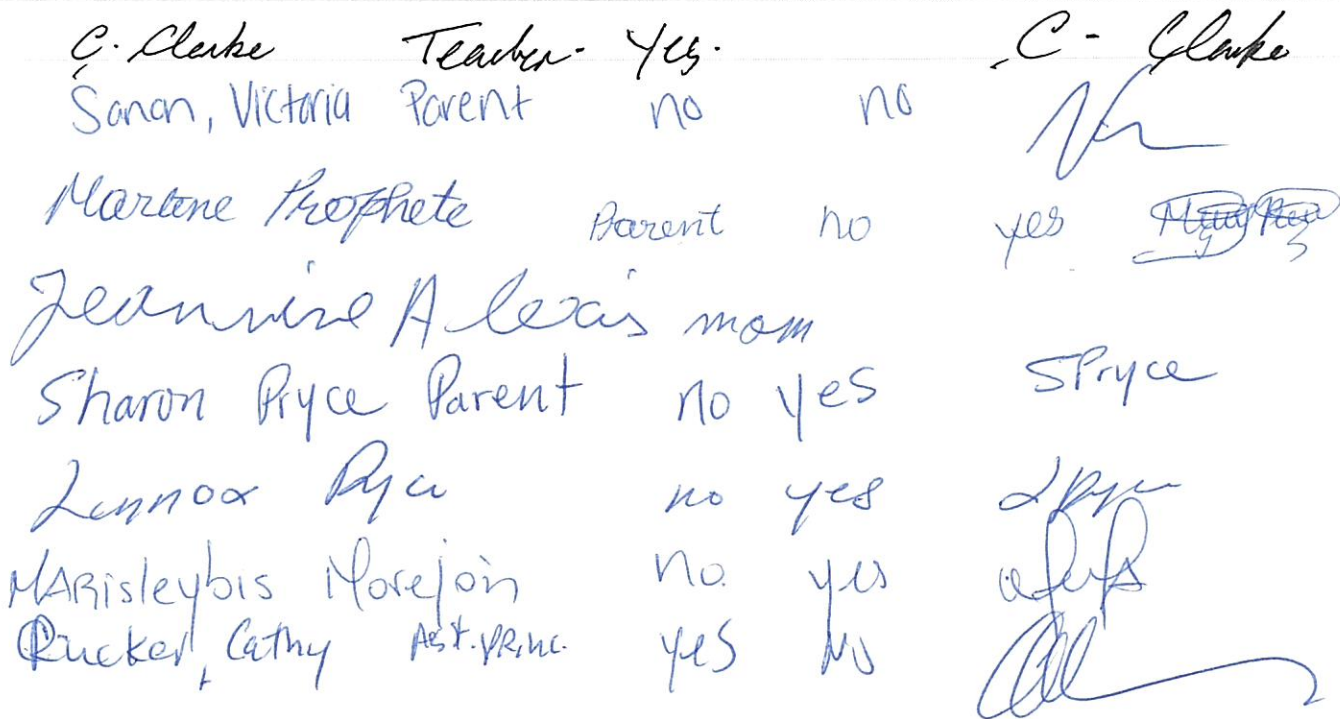 C. Clarke Teacher- Yes. C - Clarke
Sanon, Victoria Parent no no
Marlene Prophete Parent no yes
Jeannine Alexis mom
Sharon Pryce Parent no yes SPryce
Lennox Pryce no yes LPryce
MARisleybis Morejoin no. yes
Rucker, Cathy Ast.PRinc. yes No